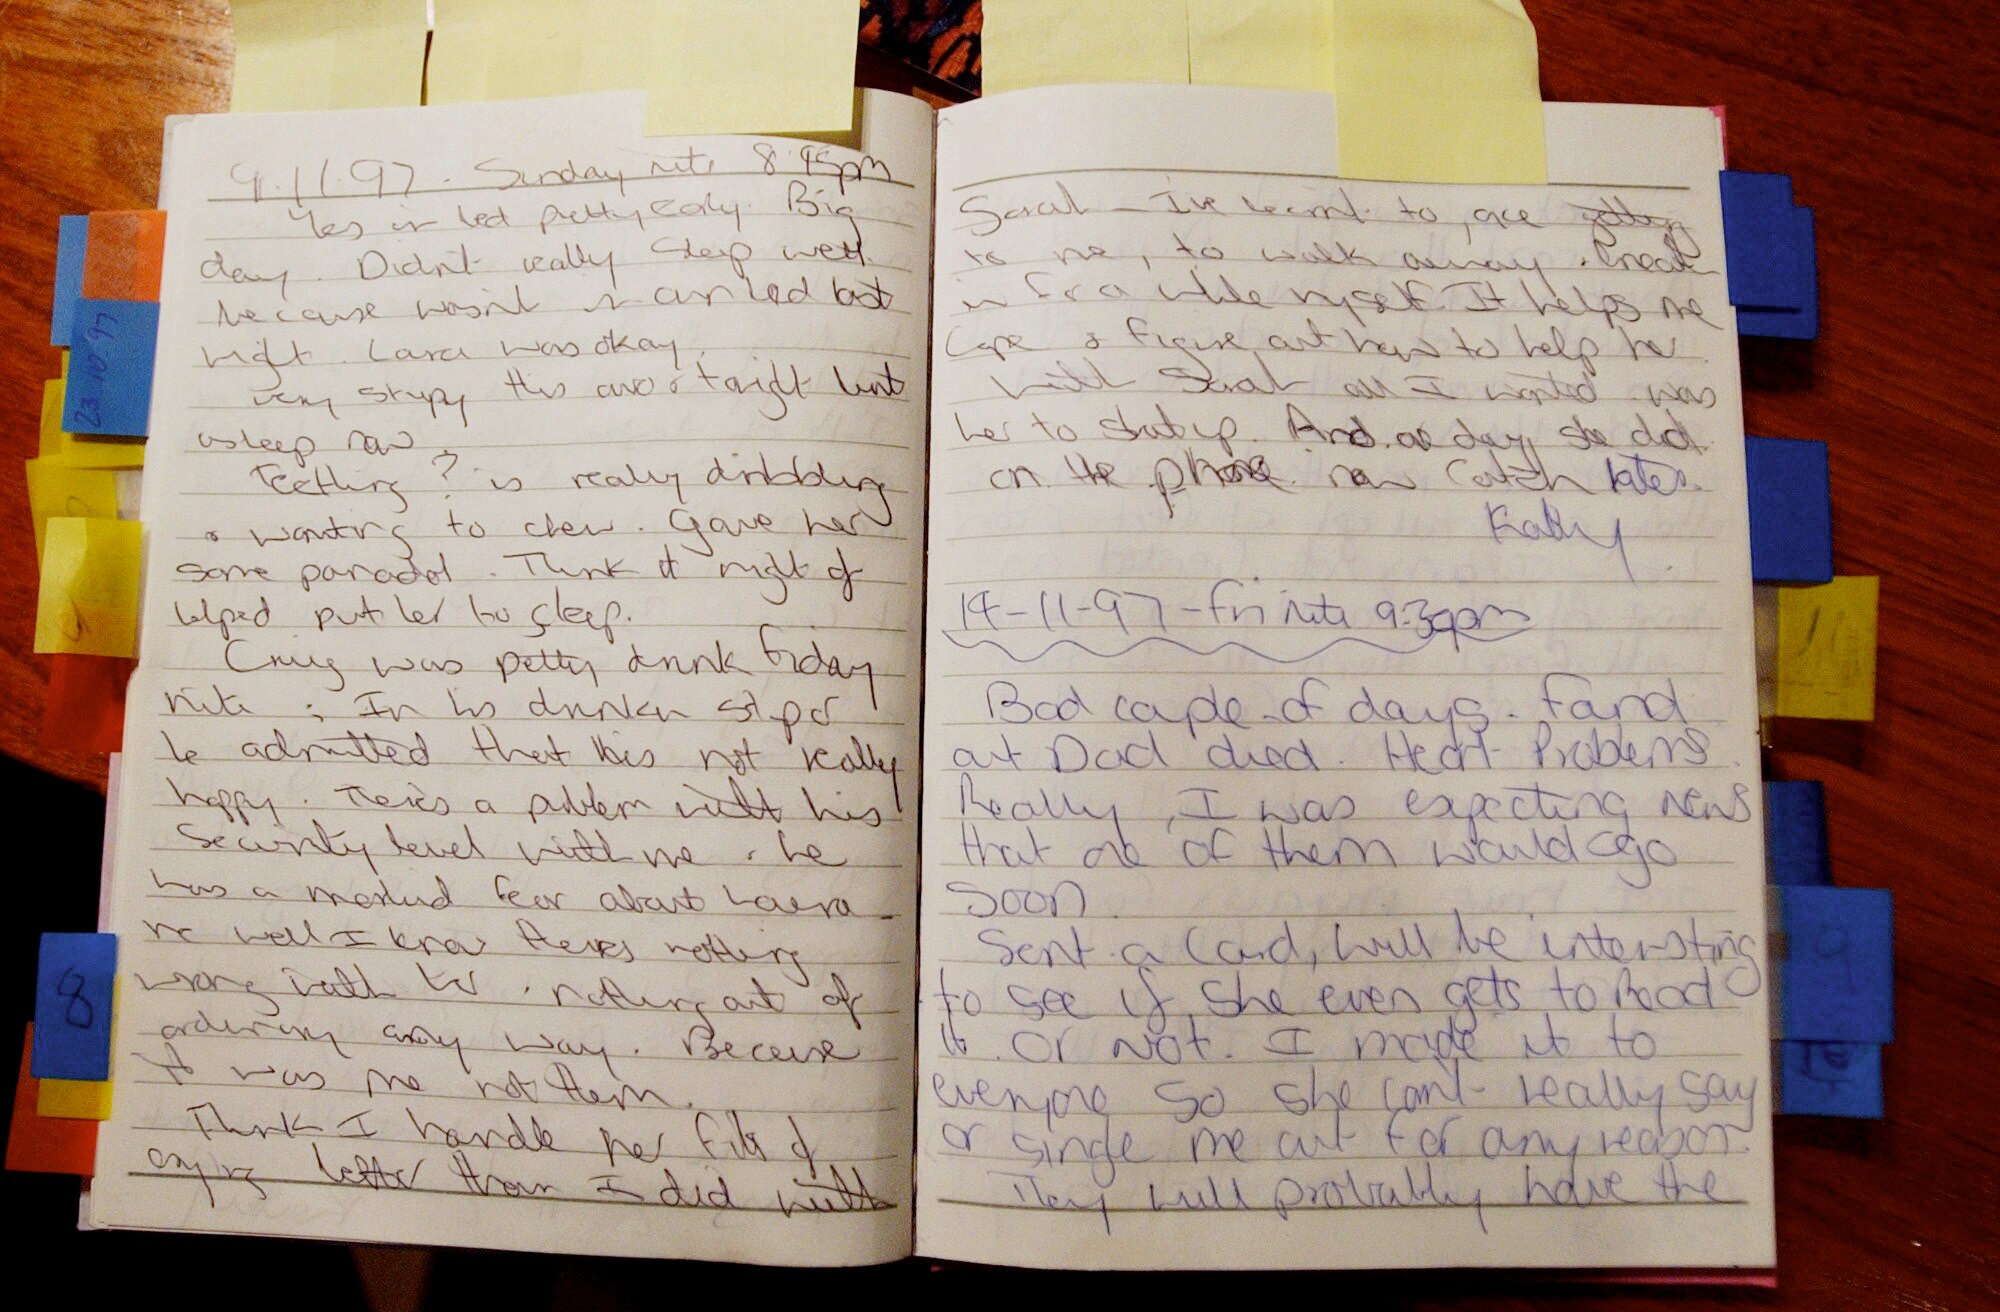 9.11.97. Sunday nite 8:45pm
Yes in bed pretty early. Big
day. Didn't really sleep well
because wasn't in own bed last
night. Laura was okay.
very this arvo & tonight but
asleep now
Teething? is really dribbling
& wanting to chew. Gave her
some panadol. Think it might of
helped put her to sleep.
Craig was pretty drunk Friday
nite; In his drunken
he admitted that he's not really
happy. There's a problem with his
security level with me. he
has a fear about Laura -
me well I know there's nothing
wrong with her. nothing out of
ordinary any way. Because
it was me not them.
Think I handle her fits of
crying better than I did with
Sarah - I've learnt to,
to me, to walk away. Break
in for a while myself. It helps me
cope & figure out how to help her.
With Sarah all I wanted was
her to shut up. And one day she did.
on the phone now Catch later.
Kathy
14-11-97 - Fri nite 9:30pm
Bad couple of days. Found
out Dad died. Heart Problems.
Really, I was expecting news
that one of them would go
soon.
Sent a Card, will be interesting
to see if she even gets to Read
it. Or Not. I made it to
everyone so she can't really say
or single me out for any reason.
They will probably have the
23.10.97
8
9